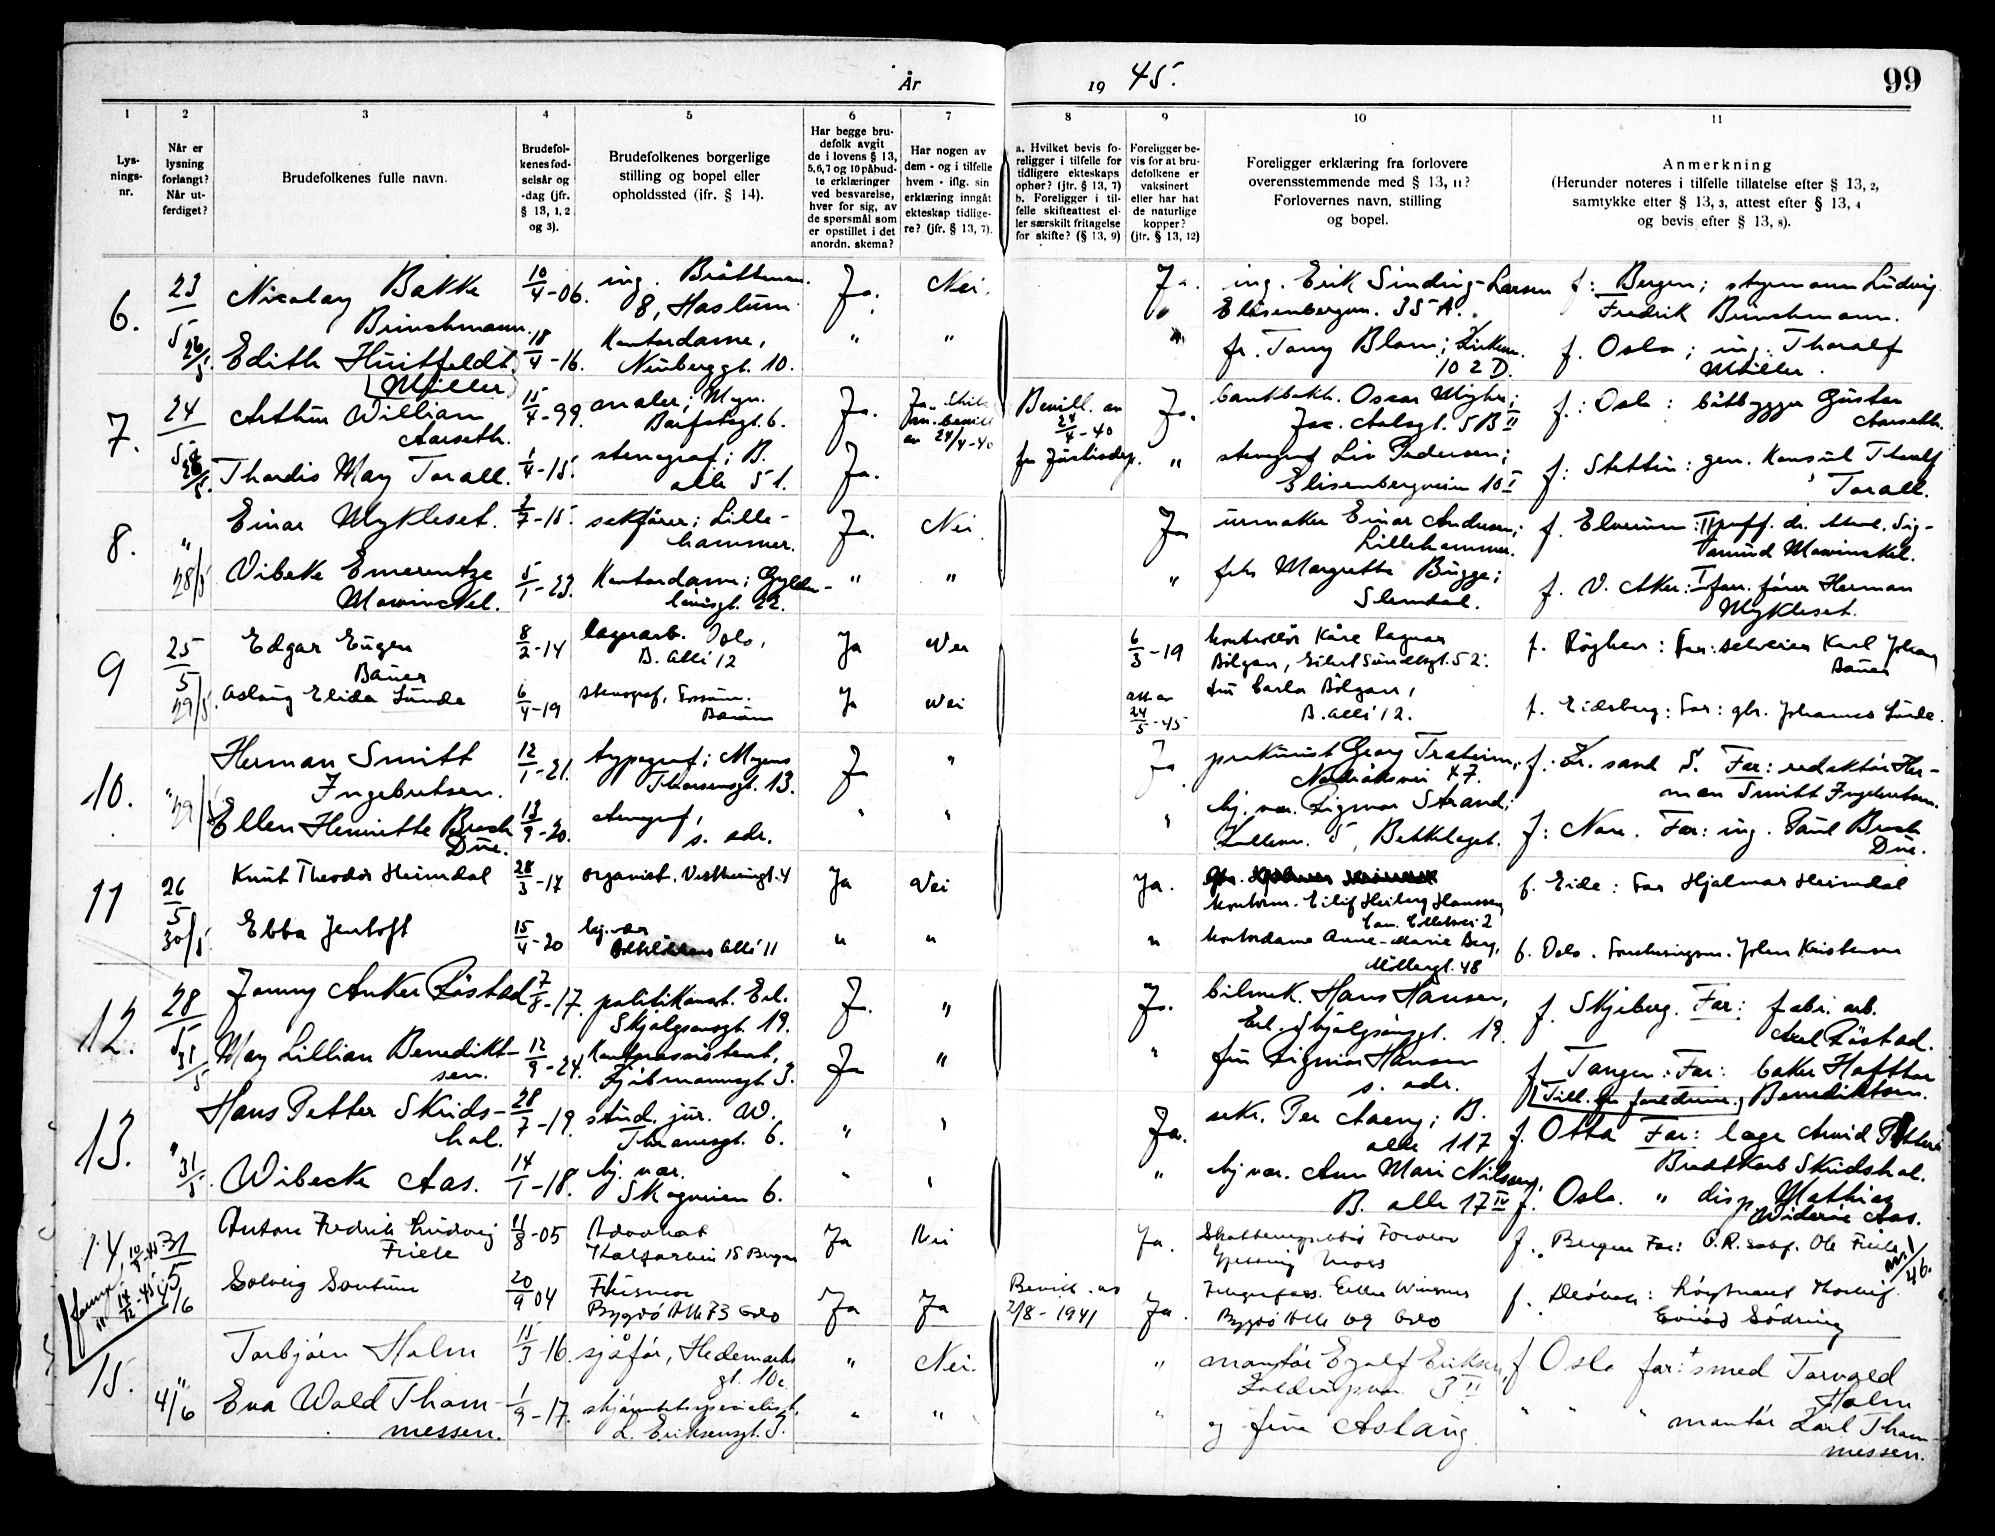 År 1945.
99
1
Lys-
nings-
nr.
2
Når er
lysning
forlangt?
Når ut-
ferdiget?
3
Brudefolkenes fulle navn.
4
Brudefol-
kenes fød-
selsår og
-dag (jfr.
§ 13, 1, 2
og 3).
5
Brudefolkenes borgerlige
stilling og bopel eller
opholdssted (jfr. § 14).
6
Har begge bru-
defolk avgit
de i lovens § 13,
5,6,7 og 10 påbud-
te erklæringer
ved besvarelse,
hver for sig, av
de spørsmål som
er opstillet i det
anordn. skema?
7
Har nogen av
dem - og i tilfelle
hvem - iflg. sin
erklæring inngått
ekteskap tidlige-
re? (jfr. § 13, 7).
8
a. Hvilket bevis fo-
religger i tilfelle for
tidligere ekteskaps
ophør? (jfr. § 13, 7)
b. Foreligger i til-
felle skifteattest el-
ler særskilt fritagelse
for skifte? (§ 13, 9)
9
Foreligger be-
vis for at bru-
defolkene er
vaksinert
eller har hat
de naturlige
kopper?
(jfr. § 13, 12)
10
Foreligger erklæring fra forlovere
overensstemmende med § 13, 11?
Forlovernes navn, stilling
og bopel.
11
Anmerkning
(Herunder noteres i tilfelle tillatelse efter § 13, 2,
samtykke efter § 13, 3, attest efter § 13, 4
og bevis efter § 13, 8).
6.
23/5
26/5
Nicolay Bakke
Brinchmann.
10/4-06.
ing. Bråttman.
8, Haslum.
Ja.
Nei.
Ja.
ing. Erik Sinding-Larsen
Elisenbergvn. 35 A.
f: Bergen; styrmann Ludvig
Fredrik Brinchmann.
Edith Huitfeldt
(Møller)
18/4-16.
Kontordame,
Neuberggt. 10.
"
"
"
fr. Tony Blom; Kirkevn.
102 D.
f. Oslo; ing. Thoralf
Møller.
7.
24/5
28/5.
Arthur William
Aarseth.
15/4-99.
maler; Magn.
Barfotsgt. 6.
Ja.
av 24/4-40
Bevill. av
24/4-40
Ja.
Oscar
5 B II
f.: Oslo: båtbygger Gustav
Aarseth.
Thordis May Torall.
1/4-15.
stenograf; B.
alle 51.
Ja.
"
stenograf Liv Pedersen;
Elisenbergveien 10 I
f: Stettin: gen. konsul Thoralf
Torall.
8.
"
28/5
Einar Mykleset.
2/7-15.
sakfører; Lille-
hammer.
Ja.
Nei.
Ja.
urmaker Einar Andersen;
Lillehammer.
f. Elverum: II Sig-
mund Mowinckel.
Vibeke Emerentze
Mowinckel.
5/1-23.
Kontordame; Gylden-
løvesgt. 22.
"
"
"
frk. Margrethe Bugge;
Slemdal.
f. V. Aker: I Herman
Mykleset.
9
25/5
29/5
Edgar Eugen
Bauer
8/2-14
lagerarb. Oslo,
B. Allé 12
Ja
Nei
6/3-19
kontrollør Kåre Ragnar
Bölgan, Eilert Sundtsgt. 52.
f. Røyken: Far: selveier Karl Johan
Bauer
Aslaug Elida Lunde
6/4-19
stenograf, Fossum.
Bærum
Ja
Nei
att. av
24/5-45
fru Carla Bölgan,
B. allé 12.
f. Eidsberg: Far: gbr. Johannes Lunde.
10.
"
29/5
Herman Smitt
Ingebretsen.
12/1-21.
typograf; Mogens
Thorsensgt. 13.
Ja
"
Ja
prokurist Georg
47.
f. Kr.sand S. Far: redaktør Her-
man Smitt Ingebretsen.
Ellen Henriette Broch
Due.
13/9-20.
stenograf,
s. adr.
"
"
"
hj. vær. Sigmor Strand;
5, Bekkelaget.
f: Nore. Far: ing. Paul Broch
Due.
11
26/5
30/5
Knut Theodor Heimdal
28/3-17
organist. 4
Ja
Nei
Ja.
kontorm. Eilif Heiberg Hanssen,
2
f. Eide: Far Hjalmar Heimdal
Ebba Jentoft
15/4-20
hj. vær
Allé 11
"
"
"
kontordame Anne-Marie Berg,
Møllergt. 48
f. Oslo. John Kristensen
12.
28/5
31/5
Jonny Anker Röstad
7/8-17.
politikonst. Erl.
Skjalgsonsgt. 19.
Ja.
"
Ja.
bilmek. Hans Hansen,
Erl. Skjalgsonsgt. 19.
f. Skjeberg. Far: fabr. arb.
Axel Röstad.
May Lillian Benedikt-
sen.
12/9-24.
Kontorassistent,
3.
Ja
"
"
fru Signora Hansen
s. adr.
f. Tangen: Far: baker Hafthor
(Till. fra foreldrene.) Benediktsen.
13.
"
31/5
Hans Petter Skrids-
hol.
28/7-19.
stud. jur. W.
Thranesgt. 6.
"
"
Ja.
sekr. Per Aaeng; B.
alle 117
f. Otta Far: læge Arvid Petter
Bredt Karb Skridshol.
Wibecke Aas.
14/1-18.
hj. vær.
Skogveien 6.
"
"
"
hj. vær. Ann Mari Nilssen,
B. alle 17 IV
f. Oslo. " disp. Mathias
Widerøe Aas.
14,
10/8-45
14/12-45
31/5
4/6
Anton Fredrik Ludvig
Friele
11/8-05
Advokat
Kalfarvei 15 Bergen
Ja
Nei
Ja.
Moss
f. Bergen Far: Ole Friele
Solveig Sontum
20/9 04
Husmor
Bygdö Alle 73 Oslo
Ja
Ja
Bevill. av
2/8-1941
Ja.
Bygdö Alle 69 Oslo
f.
15.
"
4/6
Torbjörn Holm
11/3-16.
sjåfør, Hedemarks
gt. 10c
"
Nei.
"
montør Egolf Eriksen,
3 II
f. Oslo far: + smed Torvald
Holm
Eva Wold Thom-
messen.
1/9-17.
L. Eriksensgt. 3.
"
"
"
og frue Aslaug
" " " montør Karl Thom-
messen.